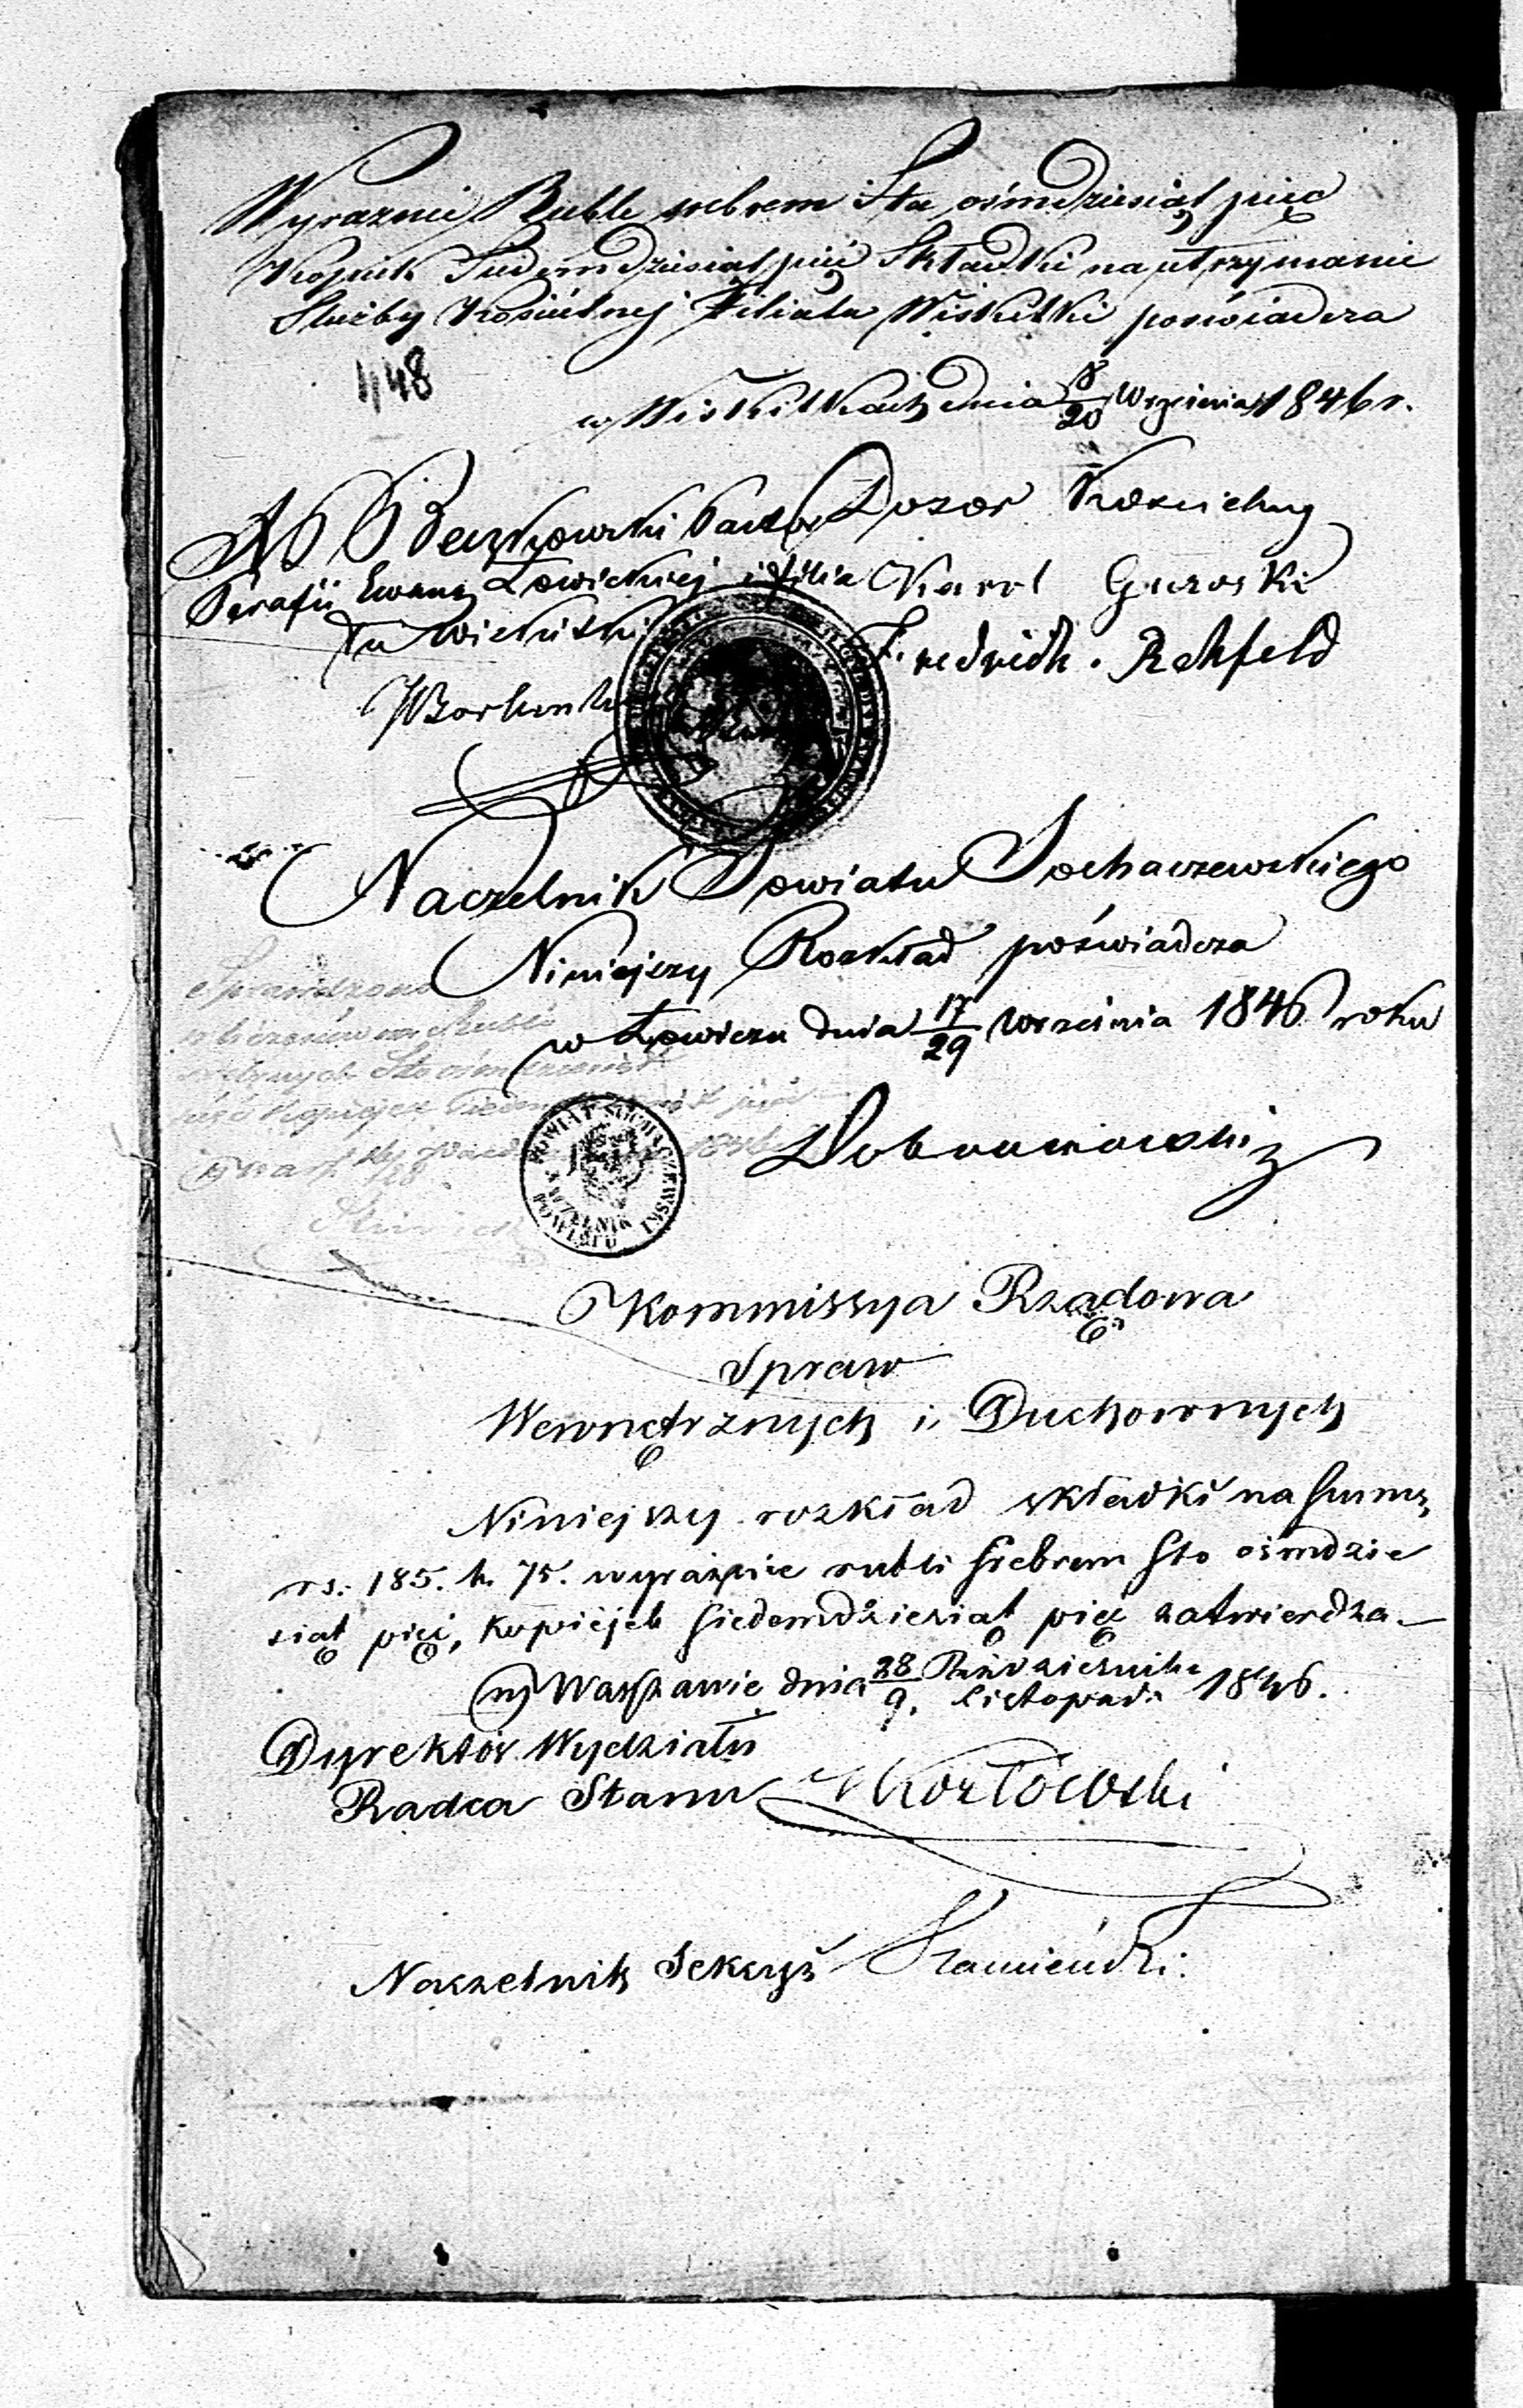 Wyraznie Rubli srebrem Sto ośmdziesiąt pięć
Kopiek Siedemdziesiąt pięć Składki na utrzymanie
Służby Kościelnej Filiału Wiskitki poświadcza
448
w Wiskitkach dnia 8/20 Września 1846 r.
Pastor
Parafii Ewang Łowickiej i Filia
łu Wiskitki
Dozor Kościelny
Karol Guzoski
Friedrich . Rehfeld
Naczelnik Powiatu Sochaczewskiego
Niniejszy Rozkład poświadcza
w Łowiczu dnia 17/29 Września 1846 roku
Sprawdzono
srebrnych Sto ośmdziesiąt
pięć Kopiejek Siedemdziesiąt pięć
1846
POWIAT SOCHACZEWSKI
NACZELNIK
POWIATU
Kommissya Rządowa
Spraw
Wewnętrznych i Duchownych
Niniejszy rozkład składki na summę
rs. 185. k. 75. wyraźnie rubli srebrem sto ośmdzie
siąt pięć, kopiejek siedemdziesiąt pięć zatwierdza.
w Warszawie dnia 28/9. Października/Listopada 1846.
Dyrektor Wydziału
Radca Stanu Kozłowski
Naczelnik Sekcyi